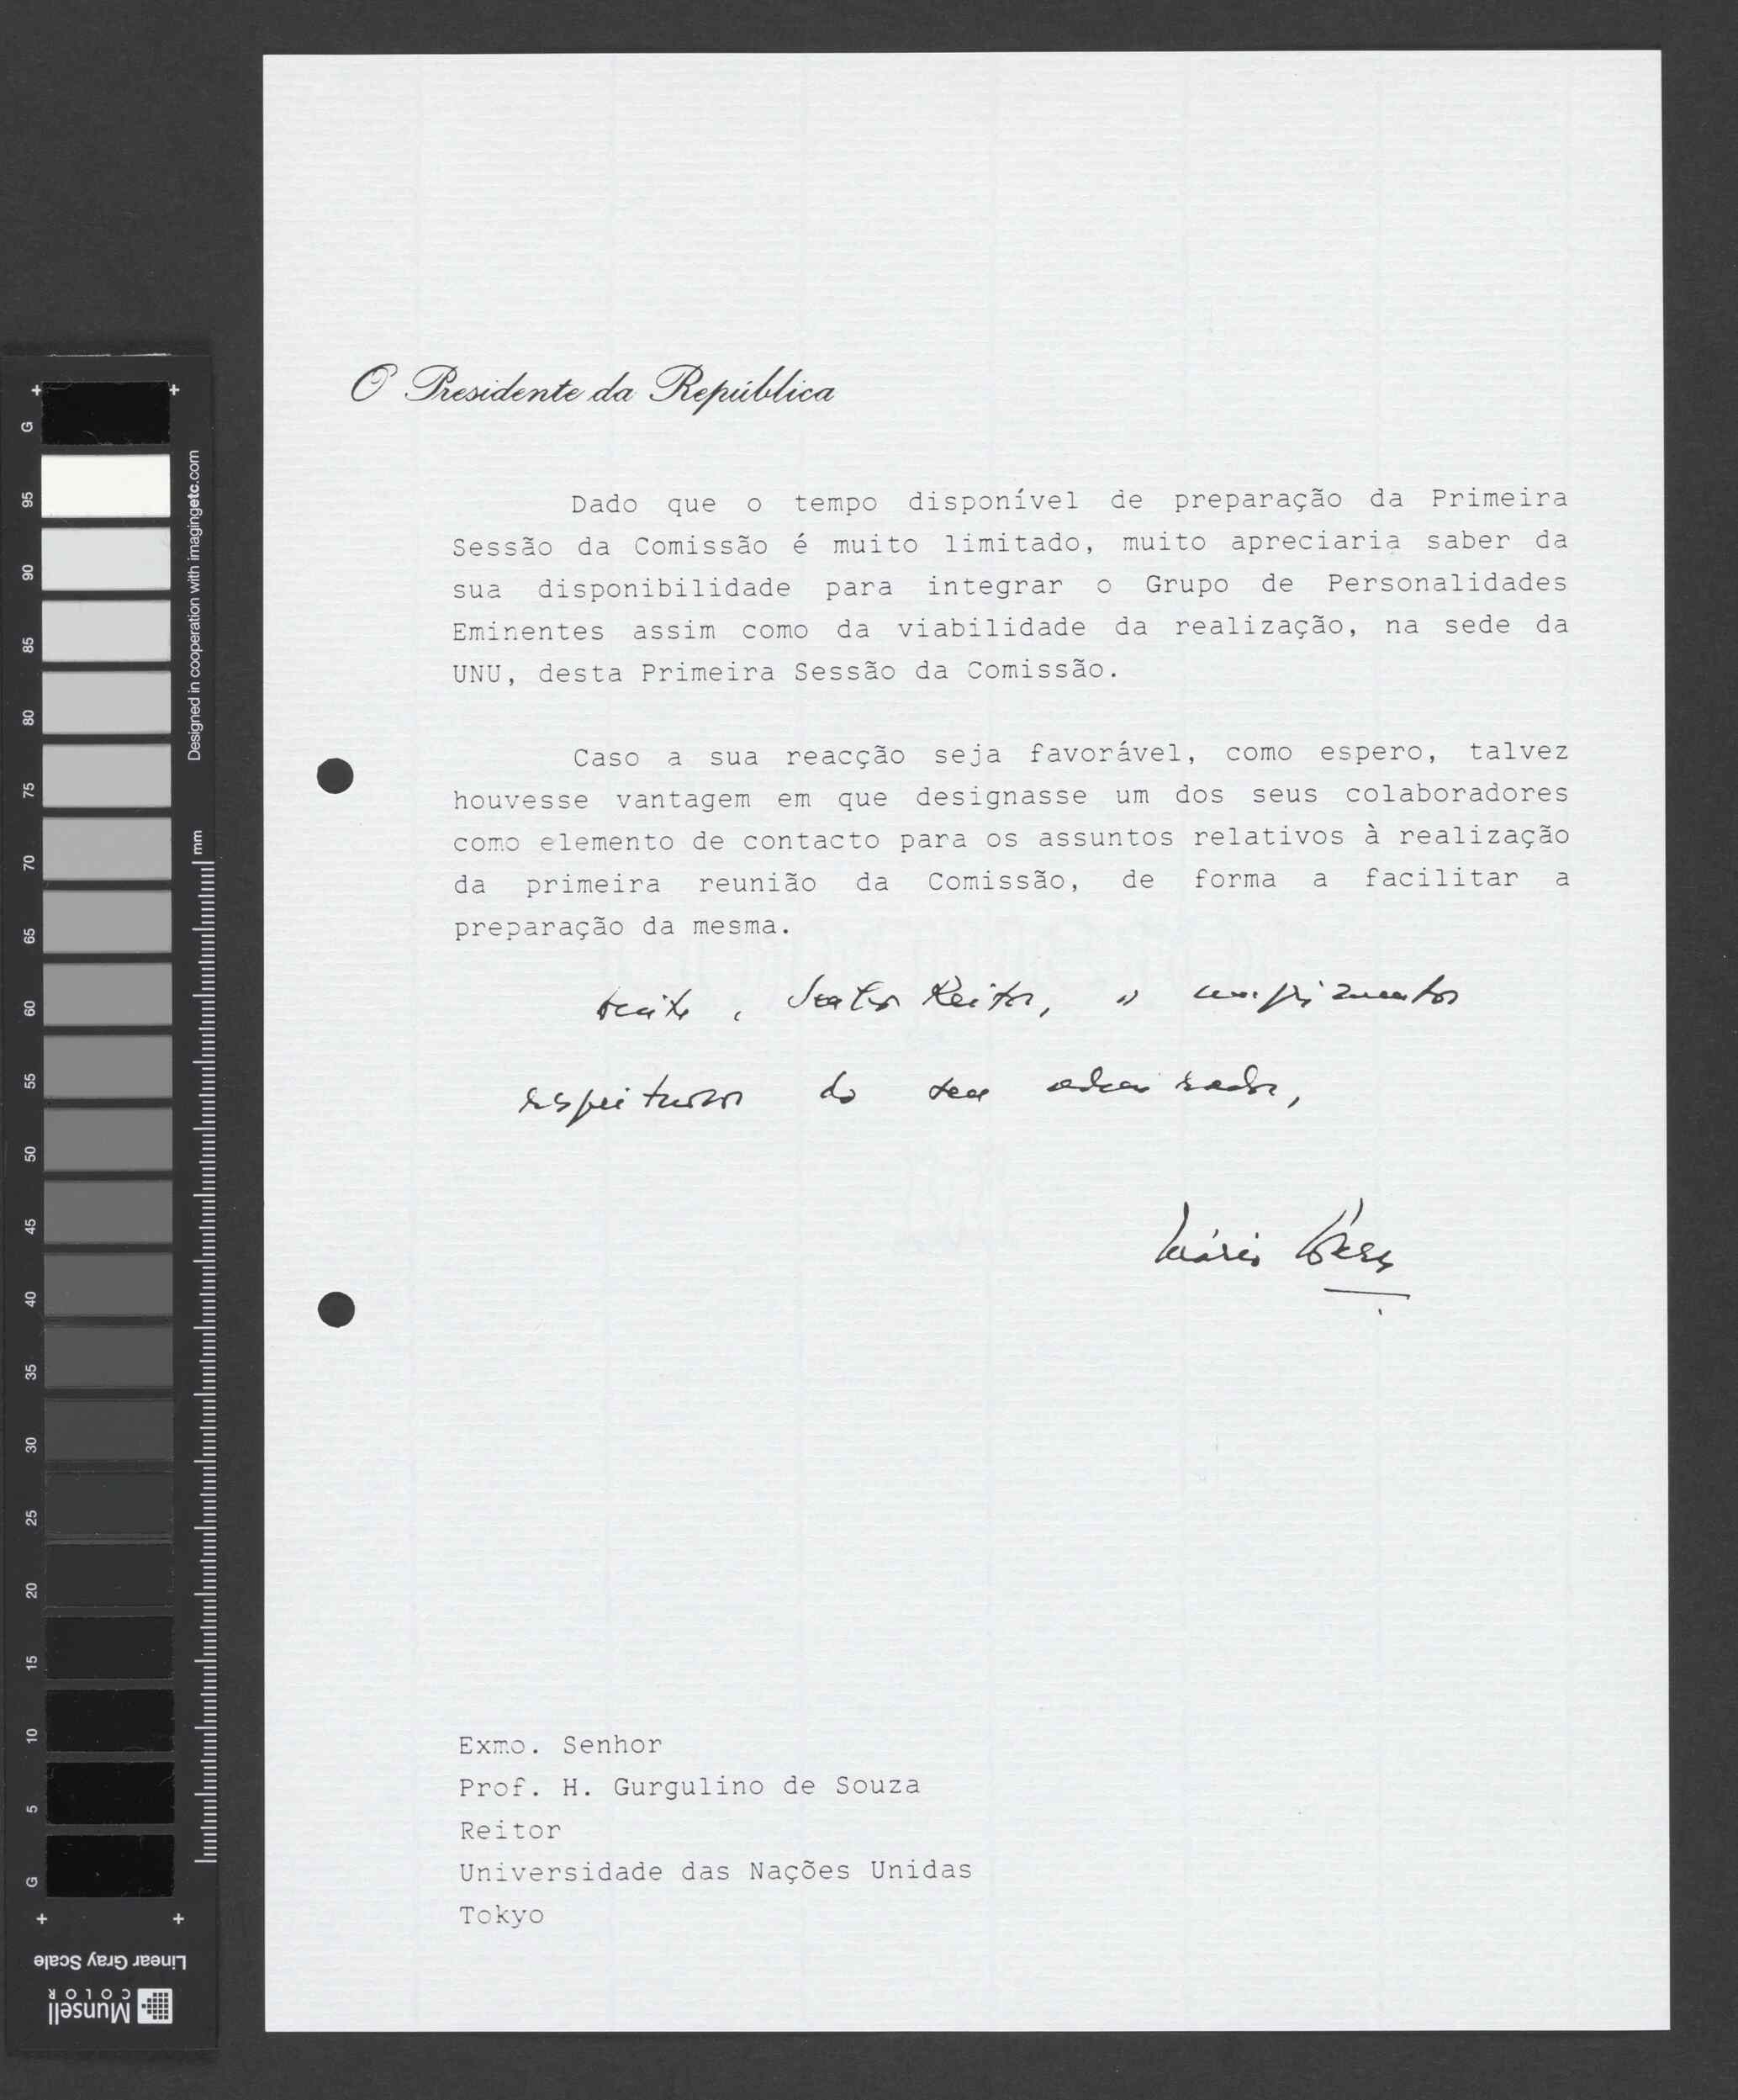 O Presidente da República
Dado que o tempo disponível de preparação da Primeira
Sessão da Comissão é muito limitado, muito apreciaria saber da
sua disponibilidade para integrar o Grupo de Personalidades
Eminentes assim como da viabilidade da realização, na sede da
UNU, desta Primeira Sessão da Comissão.
Caso a sua reacção seja favorável, como espero, talvez
houvesse vantagem em que designasse um dos seus colaboradores
como elemento de contacto para os assuntos relativos à realização
da primeira reunião da Comissão, de forma a facilitar a
preparação da mesma.
Aceite, Senhor Reitor, os cumprimentos
respeitosos do seu admirador,
Mário Soares
Exmo. Senhor
Prof. H. Gurgulino de Souza
Reitor
Universidade das Nações Unidas
Tokyo
G
95
90
85
80
75
70
65
60
55
50
45
40
35
30
25
20
15
10
5
G
Designed in cooperation with imagingetc.com
mm
Linear Gray Scale
Munsell
COLOR